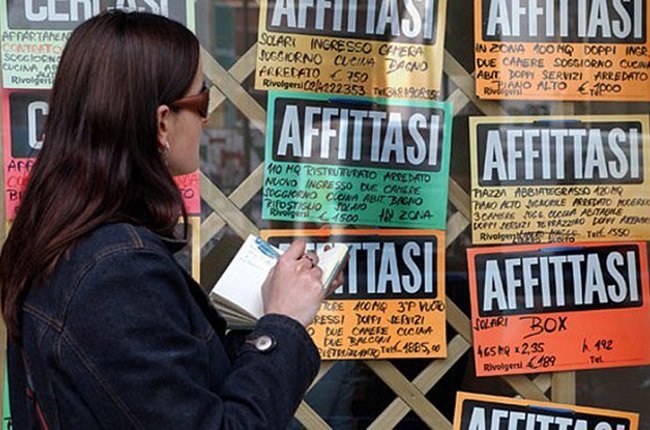 CERCASI
APPARTAMEN
CONTRATTO
CUCINA
Rivolgersi
CE
AFFITTASI
SOLARI INGRESSO CAMERA
SOGGIORNO CUCINA BAGNO
ARREDATO € 750
Rivolgersi 02/4222353 Tel. 348
AFFITTASI
IN ZONA 100 MQ DOPPI INGR
SOGGIORNO DUE CAMERE CUCINA
ABIT. DOPPI SERVIZI ARREDATO
PIANO ALTO
Rivolgersi
AFFITTASI
110 MQ RISTRUTTURATO ARREDATO
NUOVO INGRESSO DUE CAMERE
SOGGIORNO CUCINA ABIT. BAGNO
RIPOSTIGLIO SOLAIO
Rivolgersi € 1500 IN ZONA
AFFITTASI
PIAZZA ABBIATEGRASSO 120MQ
PIANO ALTO SIGNORILE ARREDATO MODERNO
3 CAMERE SOGG. CUCINA ABITABILE
DOPPI SERVIZI TERRAZZINO
Rivolgersi 1550
AFFITTASI
TORE 100 MQ 3°P VUOTO
INGRESSI DOPPI SERVIZI
DUE CAMERE CUCINA
DUE BALCONI
RISTRUTTURATO Tel. € 1885,00
AFFITTASI
SOLARI BOX
465 MQ x 2,35 h 192
Rivolgersi € 189 Tel.
AFFITTASI